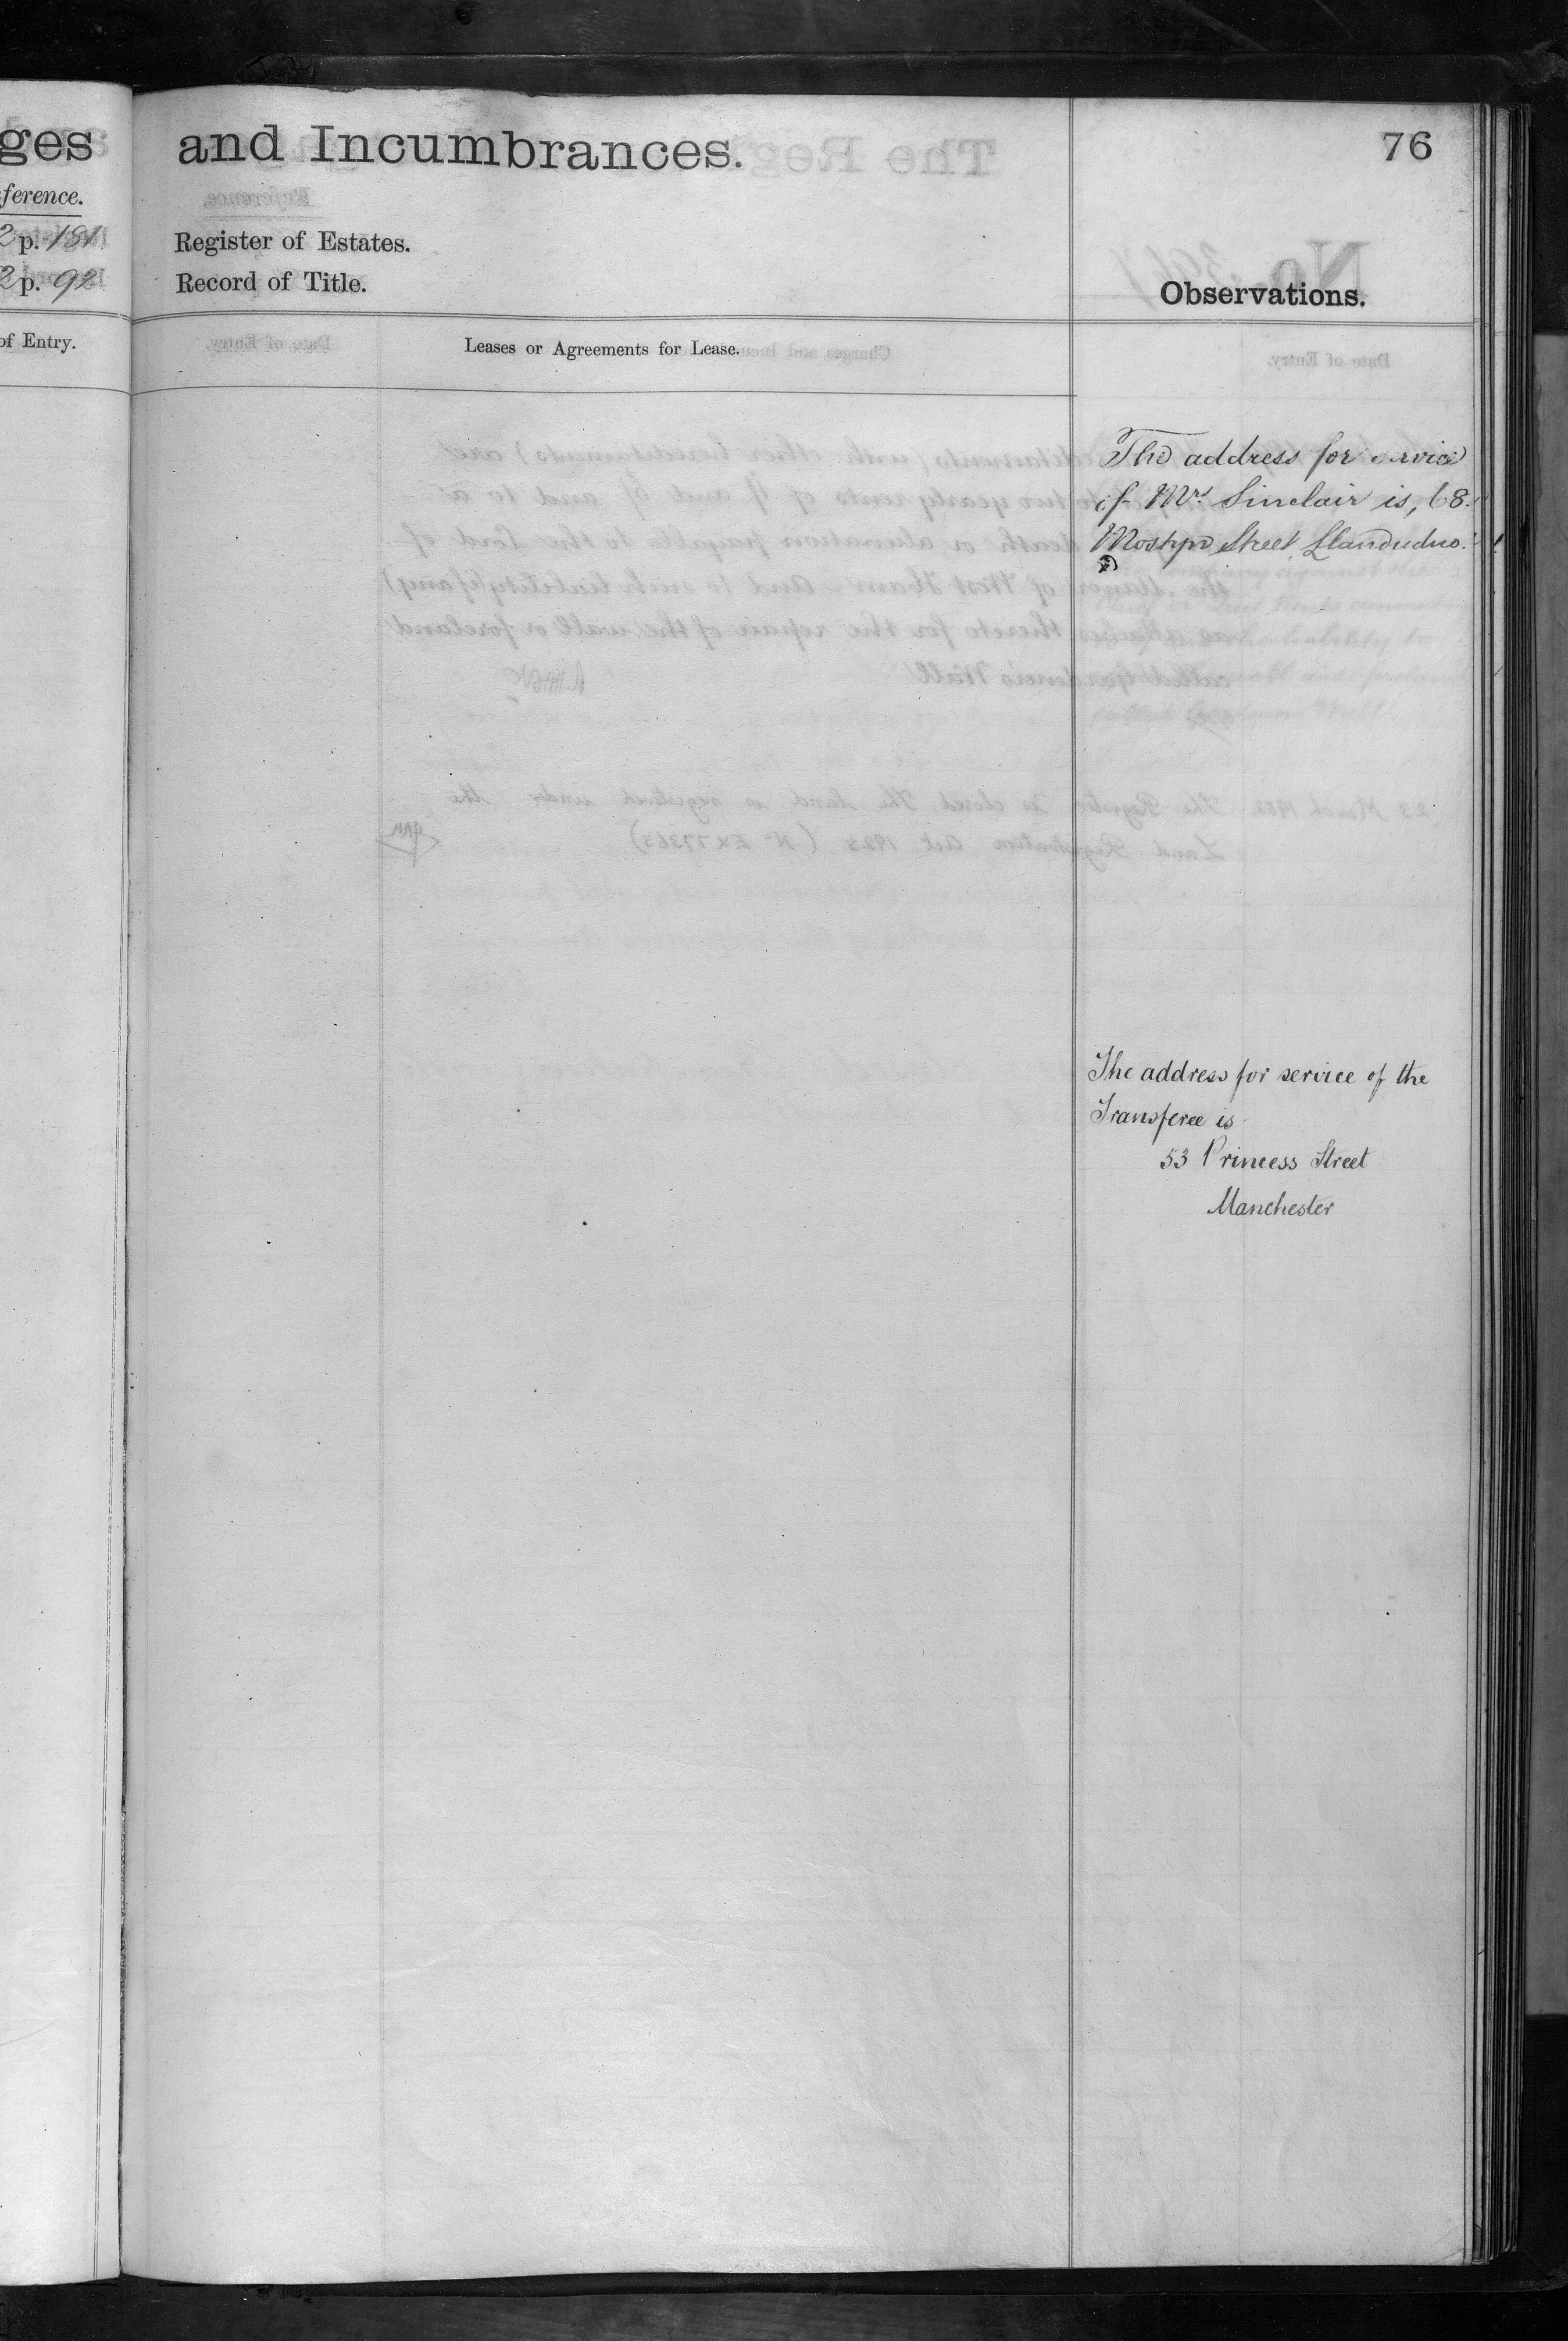 ges
ference.
2 p. 181
2 p. 92
of Entry.
and Incumbrances.
76
Register of Estates.
Record of Title.
Observations.
Leases or Agreements for Lease.
The address for service
of Mrs Sinclair is, 68.
Mostyn Street Llandudno.
The address for service of the
Transferee is
53 Princess Street
Manchester